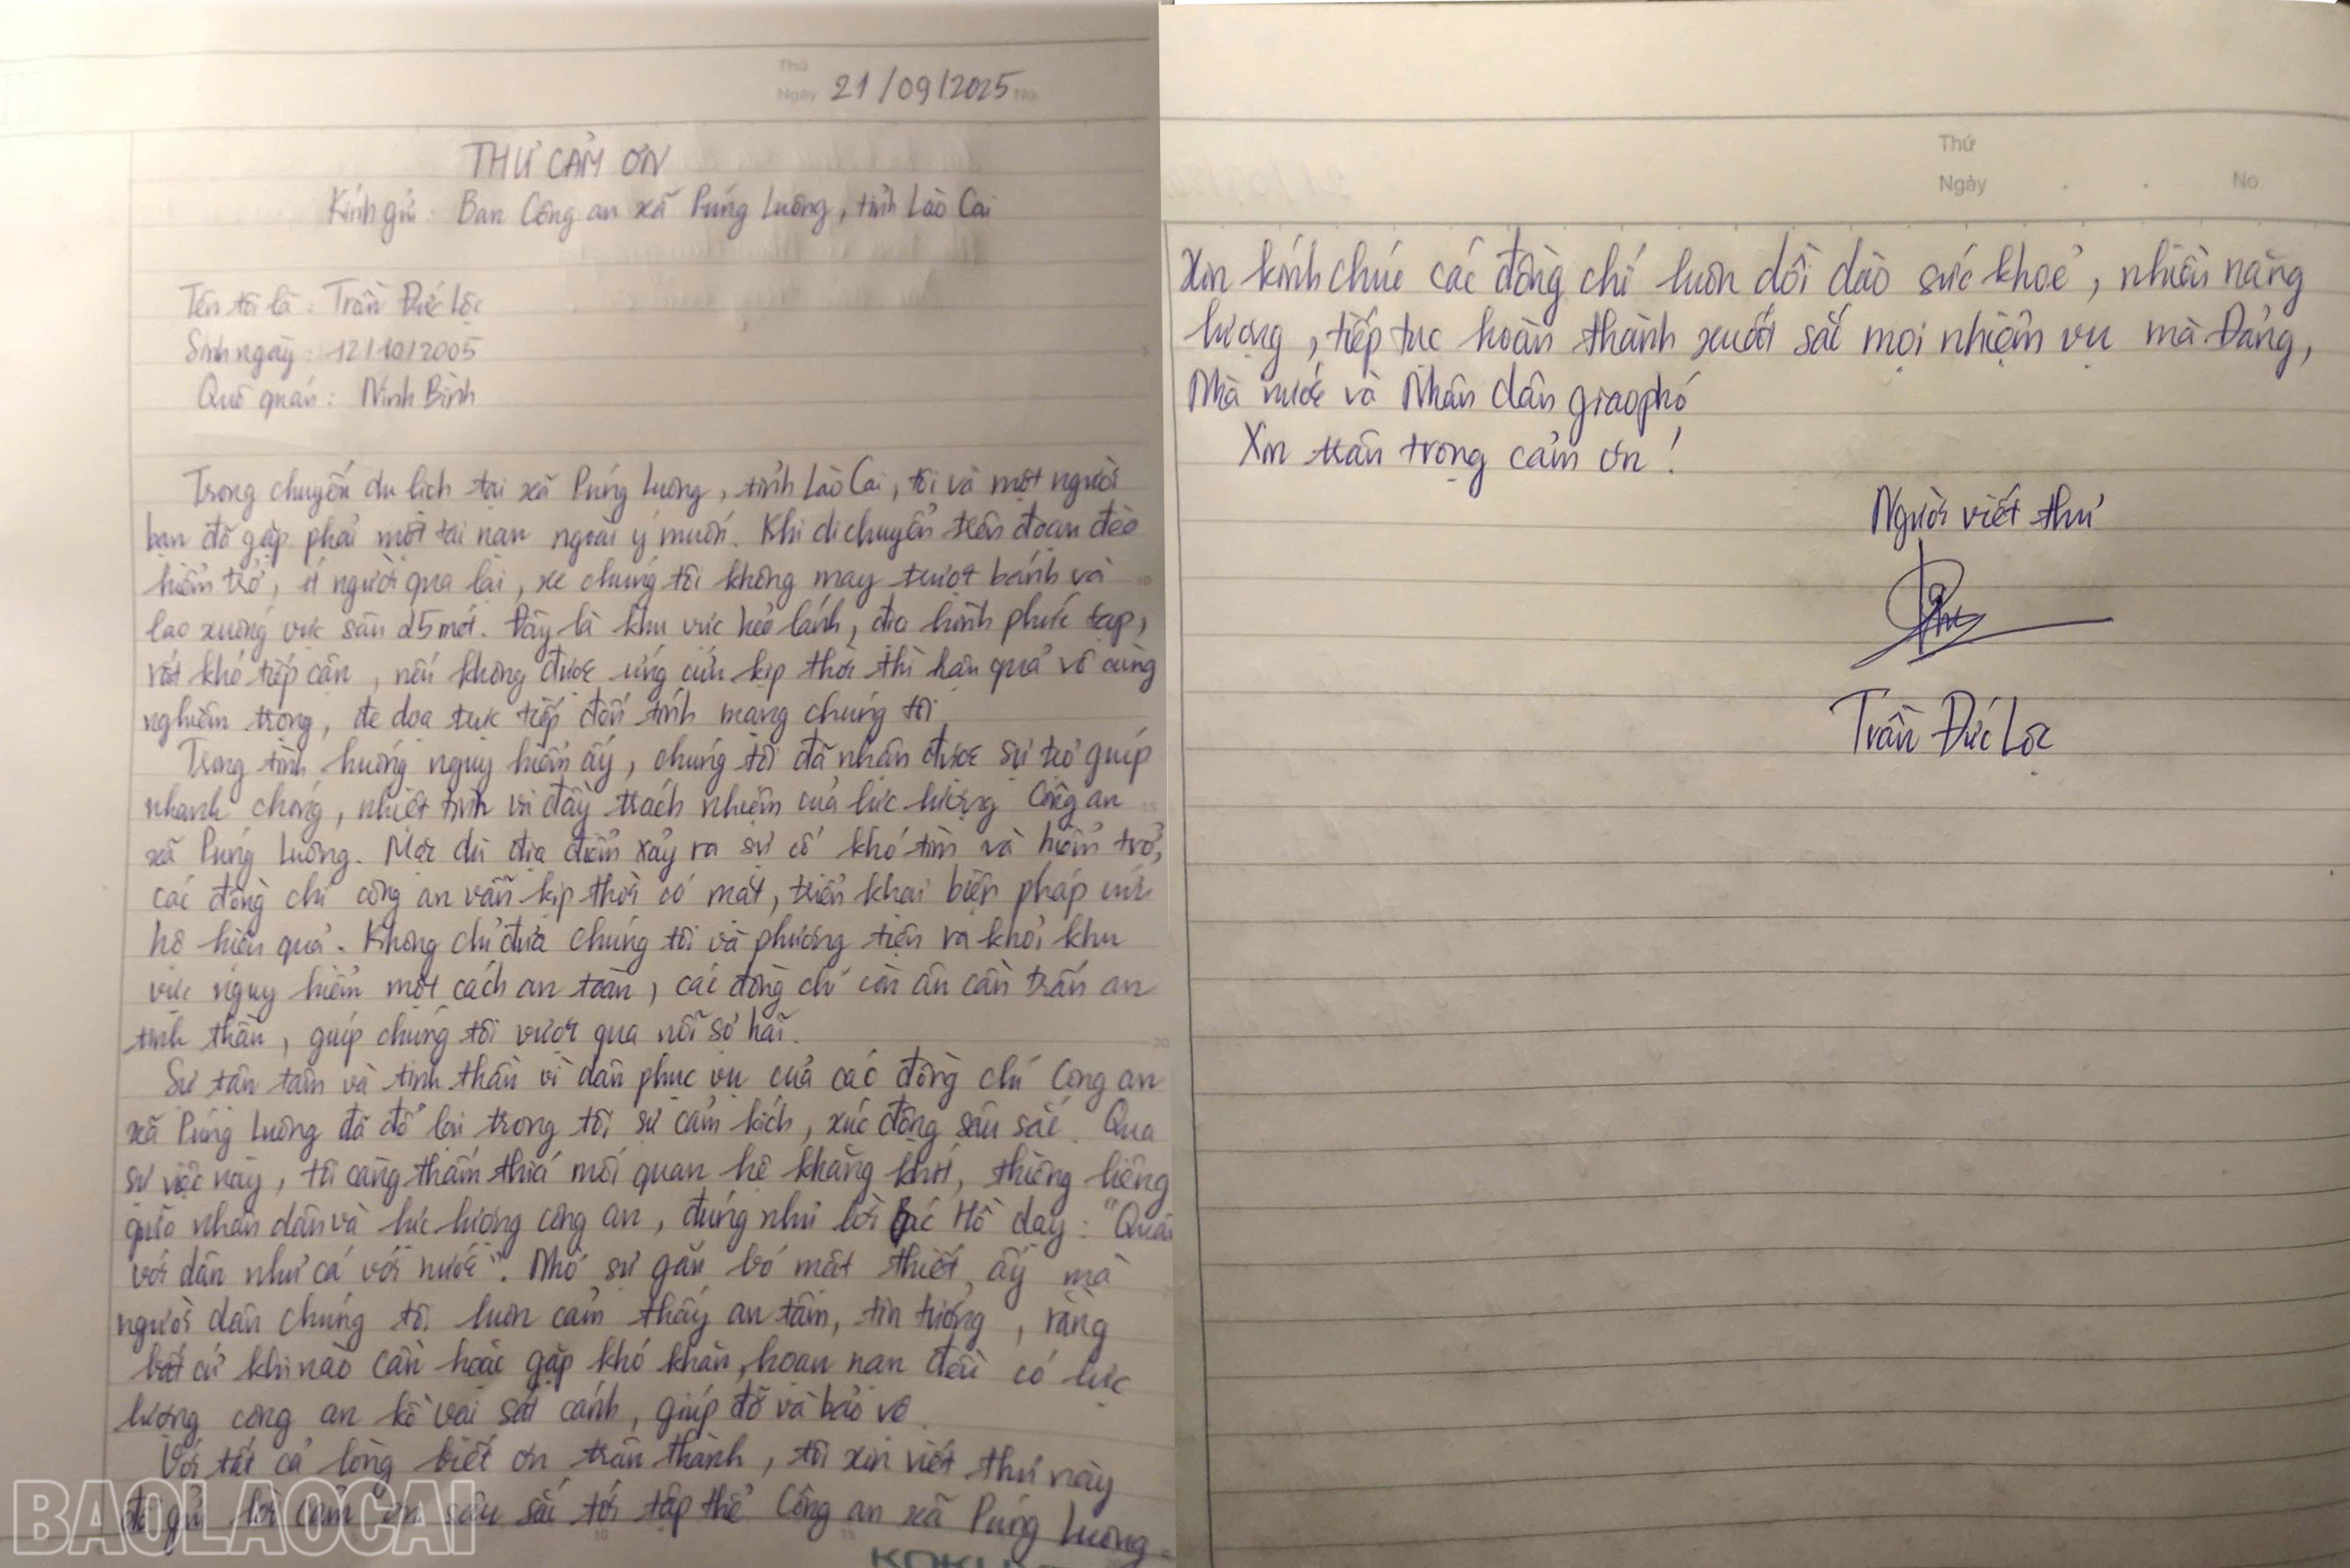 Thứ
Ngày 21/09/2025 No.
THƯ CẢM ƠN
Kính gửi: Ban Công an xã Púng Luông, tỉnh Lào Cai
Tên tôi là: Trần Đức Lộc
Sinh ngày: 12/10/2005
Quê quán: Ninh Bình
Trong chuyến du lịch tại xã Púng Luông, tỉnh Lào Cai, tôi và một người
bạn đã gặp phải một tai nạn ngoài ý muốn. Khi di chuyển trên đoạn đèo
hiểm trở, ít người qua lại, xe chúng tôi không may trượt bánh và
lao xuống vực sâu 25 mét. Đây là khu vực hẻo lánh, địa hình phức tạp,
rất khó tiếp cận, nếu không được ứng cứu kịp thời thì hậu quả vô cùng
nghiêm trọng, đe dọa trực tiếp đến tính mạng chúng tôi
Trong tình huống nguy hiểm ấy, chúng tôi đã nhận được sự trợ giúp
nhanh chóng, nhiệt tình và đầy trách nhiệm của lực lượng Công an
xã Púng Luông. Mặc dù địa điểm xảy ra sự cố khó tìm và hiểm trở,
các đồng chí công an vẫn kịp thời có mặt, triển khai biện pháp cứu
hộ hiệu quả. Không chỉ đưa chúng tôi và phương tiện ra khỏi khu
vực nguy hiểm một cách an toàn, các đồng chí còn ân cần trấn an
tinh thần, giúp chúng tôi vượt qua nỗi sợ hãi.
Sự tận tâm và tinh thần vì dân phục vụ của các đồng chí Công an
xã Púng Luông đã để lại trong tôi sự cảm kích, xúc động sâu sắc. Qua
sự việc này, tôi càng thấm thía mối quan hệ khăng khít, thiêng liêng
giữa nhân dân và lực lượng công an, đúng như lời Bác Hồ dạy: "Quân
với dân như cá với nước". Nhờ sự gắn bó mật thiết ấy mà
người dân chúng tôi luôn cảm thấy an tâm, tin tưởng, rằng
bất cứ khi nào cần hoặc gặp khó khăn, hoạn nạn đều có lực
lượng công an kề vai sát cánh, giúp đỡ và bảo vệ.
Với tất cả lòng biết ơn trân thành, tôi xin viết thư này
để gửi lời cảm ơn sâu sắc tới tập thể Công an xã Púng Luông
BAOLAOCAI
Thứ
Ngày No.
Xin kính chúc các đồng chí luôn dồi dào sức khoẻ, nhiều năng
lượng, tiếp tục hoàn thành xuất sắc mọi nhiệm vụ mà Đảng,
Nhà nước và Nhân dân giao phó
Xin trân trọng cảm ơn!
Người viết thư
Trần Đức Lộc